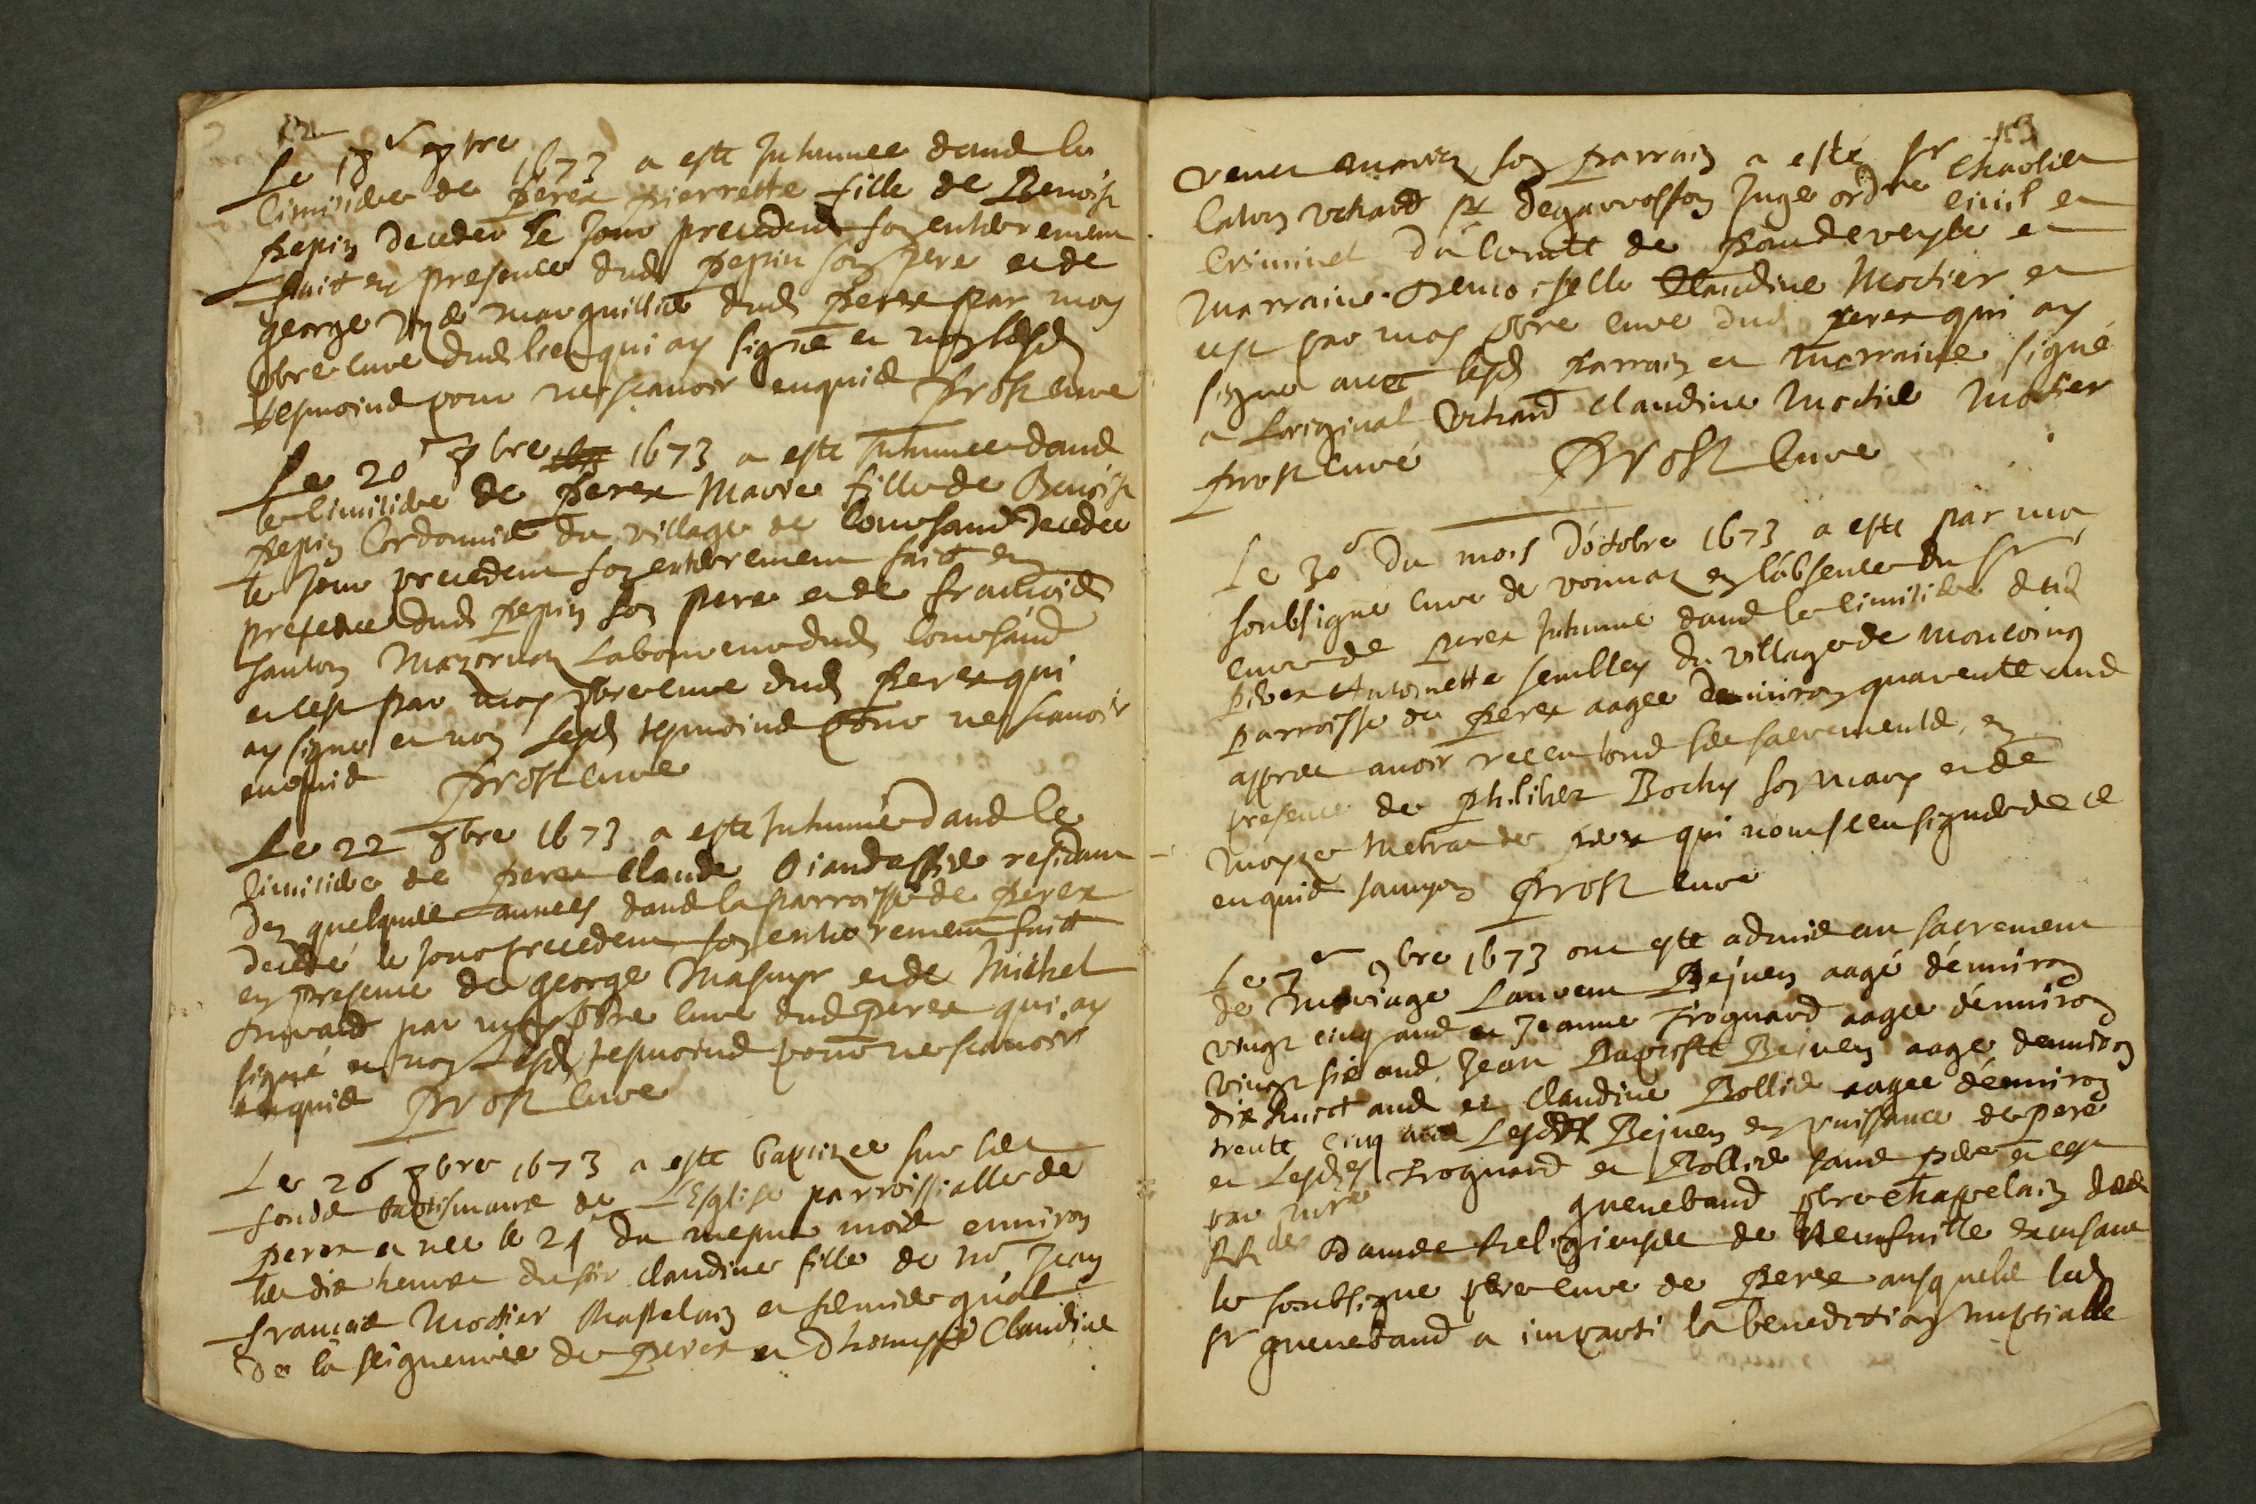 12
Le 18e 8bre 1673 a este Inhumee dans le
Cimitiere de Perex pierrette fille de Benoist
Pepin decedee le Jour precedent son enterrement
fait en presence dud Pepin son pere et de
george marguillier dud Perex par moy
pbre Cure dud lieu qui ay signe et non lesd
tesmoins pour ne scavoir enquis Prost cure
Le 20e 8bre 1673 a este Inhumee dans
le Cimitiere de Perex Marie fille de Benoist
Pepin Cordonnier du village de Coursand decedee
le Jour precedent son enterrement fait en
presence dud Pepin son pere et de francois
Laboureur dud Coursand
et cest par moy pbre cure dud Perex qui
ay signe et non lesd tesmoins pour ne scavoir
enquis Prost cure
Le 22 8bre 1673 a este Inhumé dans le
Cimitiere de Perex Claude residant
des quelques années dans la parroisse de Perex
decedé le jour precedent son enterrement fait
en presence de george et de Michel
par moy pbre Cure dud Perex qui ay
signé et non Lesd tesmoins pour ne scavoir
enquis Prost Cure
Le 26 8bre 1673 a este baptizee sur les
fonds baptismaux de L'Esglise parroissialle de
Perex et nee le 24e du mesme mois environ
les dix heures du soir Claudine fille de Me Jean
francois Modier Chastelain et
de la seigneurie de Perex et d'honneste Claudine
13
son parrain a este Sr Charles
Uchard Sr Juge ordre civil et
Criminel du Comté de Pondeveyle et
marraine Demoiselle Claudine Modier et
cest par moy pbre cure dud Perex qui ay
signe avec lesd Parrain et marraine signé
a Loriginal Uchard Claudine Modier Modier
Prost curé Prost Cure
Le 30e du mois D'octobre 1673 a este par moy
soubsigné cure de vonnaz en l'absence du Sr
cure de Perex Inhumé dans le cimitiere dud
Perex Antoinette du village de
Parroisse de Perex aagee denviron quarente ans
appres avoir receu tous ses sacrements, en
presence de Philibert Bochy son mary et de
Moyze de Perex qui nont sceu signer de ce
enquis Prost cure
Le 7e 9bre 1673 ont este admis au sacrement
de Mariage Laurent Bejuen aagé d'environ
vingt cinq ans et Jeanne Froguard aagee d'environ
vingt six ans, Jean Baptiste Bejuen aagé denviron
dix huict ans et Claudine Bollie aagee d'environ
trente cinq ans Lesdts Bejuen en puissance de pere
et Lesdtes Froguard et Bollie sans pere et cest
par mre gueneband pbre Chapelain des
RRdes Dames Religieuses de Neufville
le soubsigne pbre cure de Perex ausquels led
Sr gueneband a imparti la benediction nuptialle